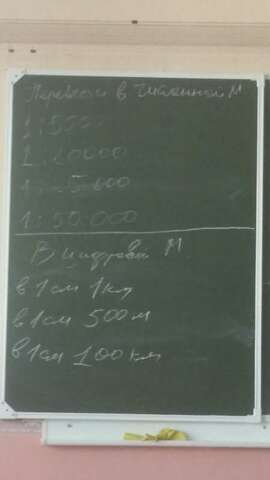 Перевести в численной М
1:5000
1:20000
1:5000
1:50.000
В цифровой М
в 1 см 1 км
в 1 см 500 м
в 1 см 100 км